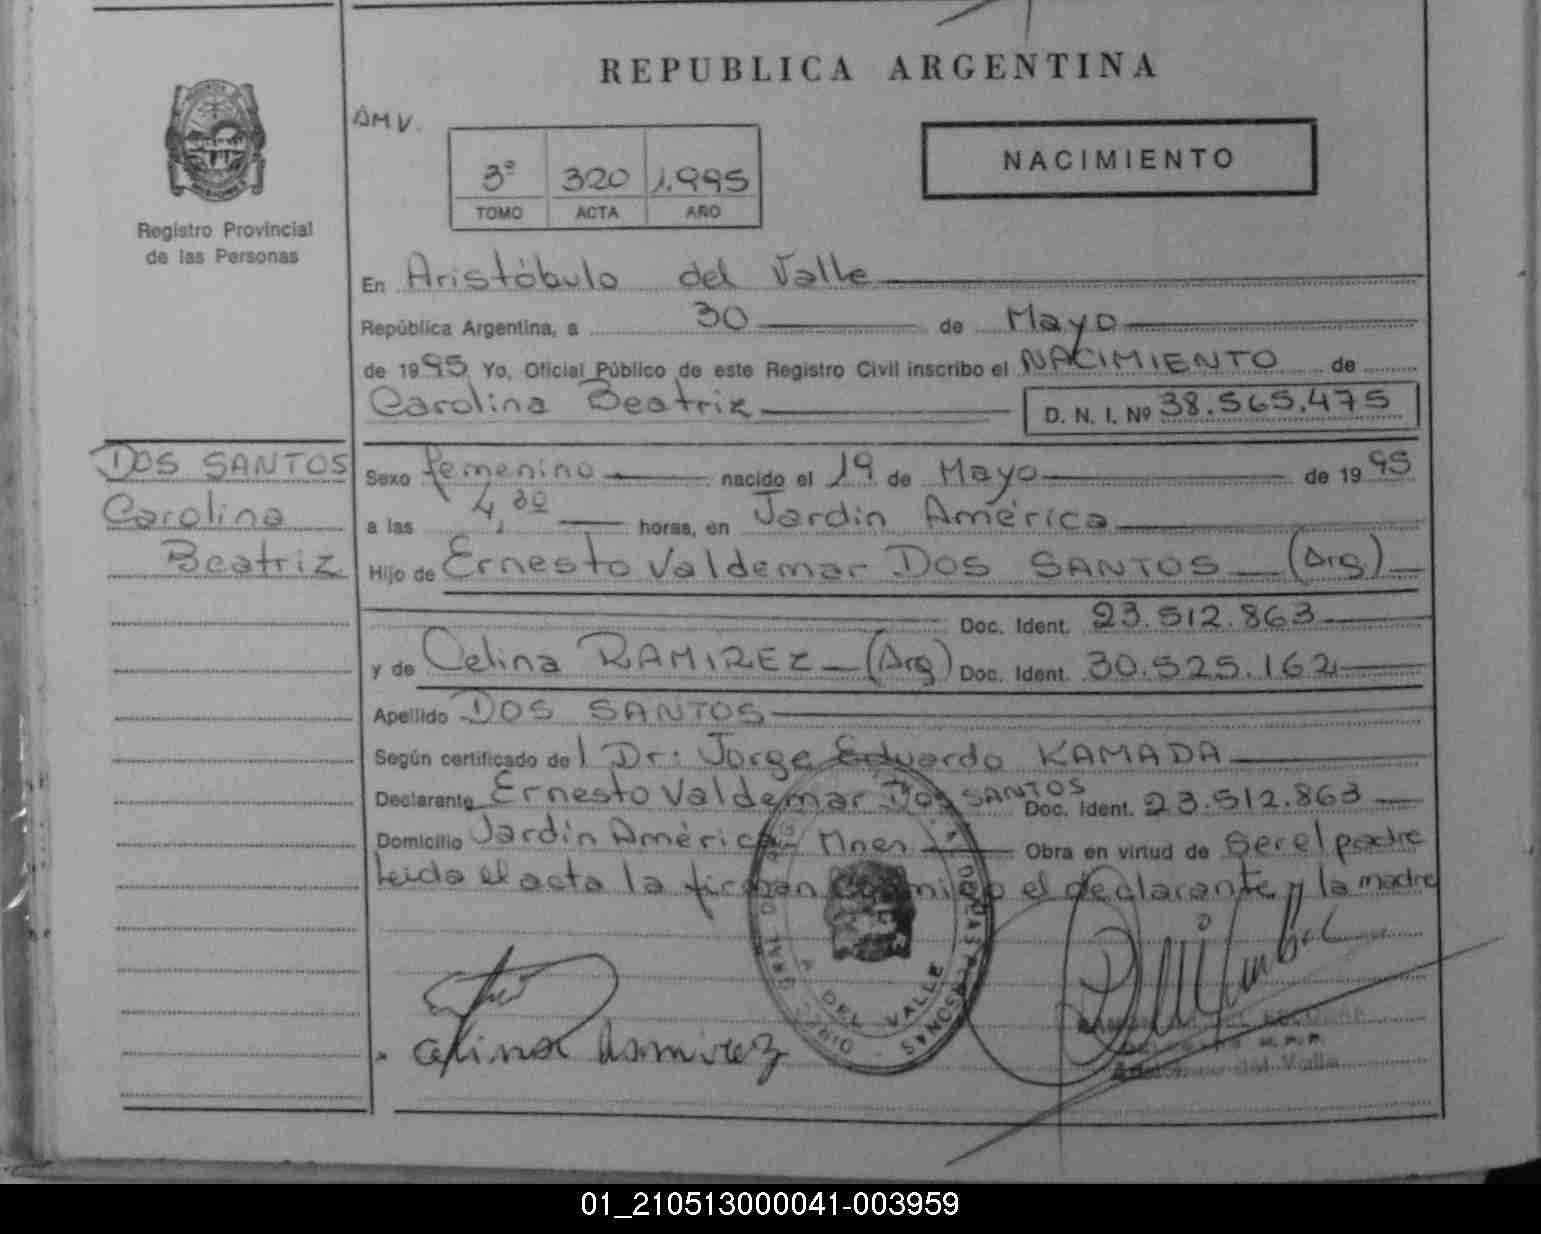 REPUBLICA ARGENTINA
AMV.
NACIMIENTO
3º 320 1.995
TOMO ACTA AÑO
Registro Provincial
de las Personas
En Aristóbulo del Valle
República Argentina, a 30 de Mayo
de 1995 Yo, Oficial Público de este Registro Civil inscribo el NACIMIENTO de
Carolina Beatriz D. N. I. Nº 38.565.475
DOS SANTOS
Carolina
Beatriz
Sexo femenino nacido el 19 de Mayo de 1995
a las 4,30 horas, en Jardín América
Hijo de Ernesto Valdemar DOS SANTOS (Arg)
Doc. Ident. 23.512.863
y de Celina RAMIREZ (Arg) Doc. Ident. 30.525.162
Apellido DOS SANTOS
Según certificado del Dr: Jorge Eduardo KAMADA
Declarante Ernesto Valdemar DOS SANTOS Doc. Ident. 23.512.863
Domicilio Jardín América - Mnes Obra en virtud de ser el padre
Leida el acta la firman conmigo el declarante y la madre
DEL VALLE
Celina Ramirez
del Valle
01_210513000041-003959